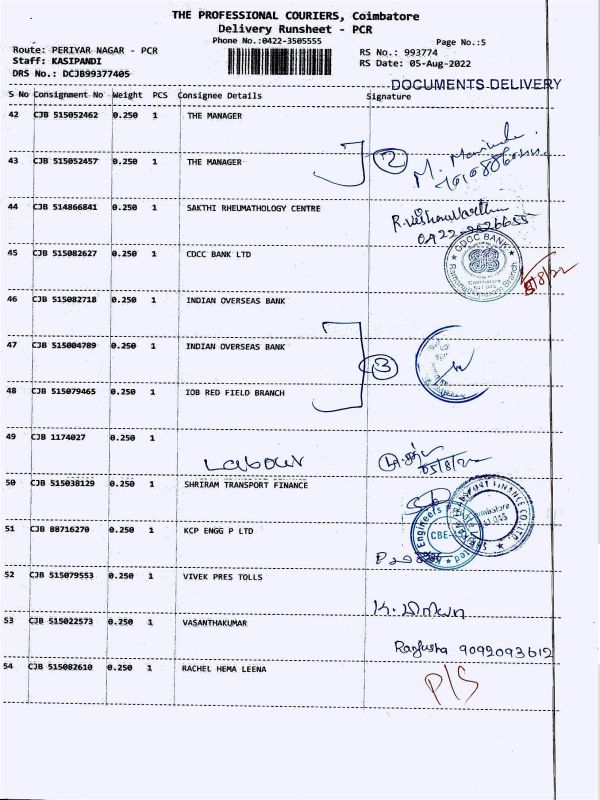 THE PROFESSIONAL COURIERS, Coimbatore
Delivery Runsheet - PCR
Phone No.:0422-3505555
Page No.:5
Route: PERIYAR NAGAR - PCR
RS No.: 993774
Staff: KASIPANDI
RS Date: 05-Aug-2022
DRS No.: DCJB99377405
DOCUMENTS DELIVERY
S No Consignment No Weight PCS Consignee Details Signature
42 CJB 515052462 0.250 1 THE MANAGER
43 CJB 515052457 0.250 1 THE MANAGER
2
44 CJB 514866841 0.250 1 SAKTHI RHEUMATHOLOGY CENTRE
45 CJB 515082627 0.250 1 CDCC BANK LTD
CDCC BANK
46 CJB 515082718 0.250 1 INDIAN OVERSEAS BANK
47 CJB 515004789 0.250 1 INDIAN OVERSEAS BANK
3
48 CJB 515079465 0.250 1 IOB RED FIELD BRANCH
49 CJB 1174027 0.250 1
Labour
50 CJB 515038129 0.250 1 SHRIRAM TRANSPORT FINANCE
51 CJB 88716270 0.250 1 KCP ENGG P LTD
52 CJB 515079553 0.250 1 VIVEK PRES TOLLS
53 CJB 515022573 0.250 1 VASANTHAKUMAR
9092093612
54 CJB 515082610 0.250 1 RACHEL HEMA LEENA
P/S